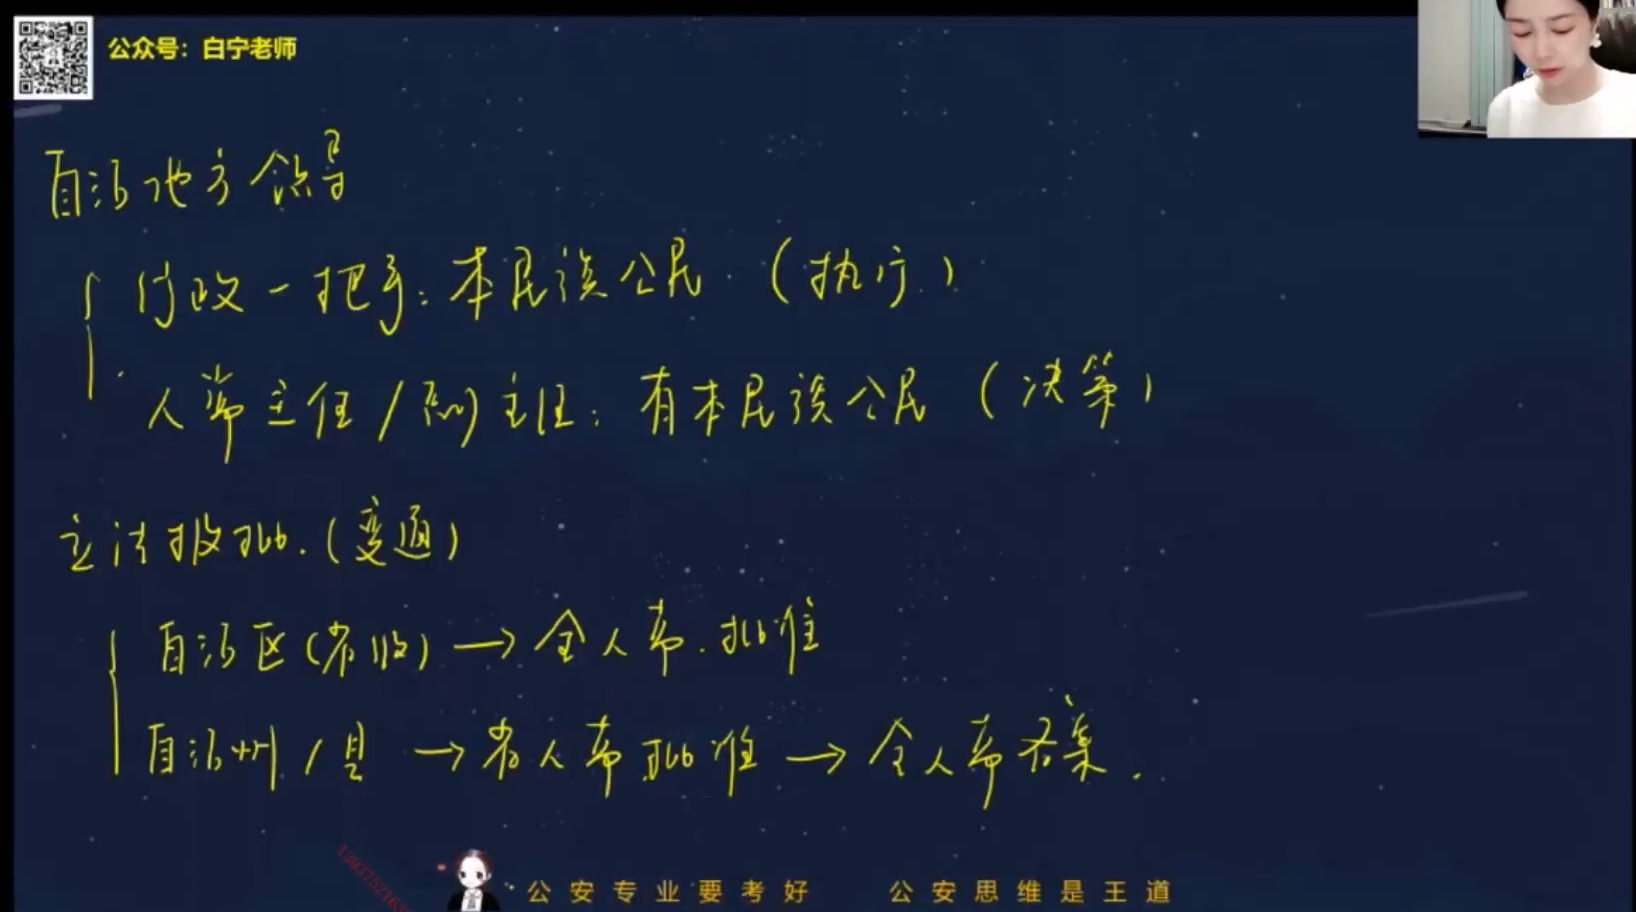 公众号：白宁老师
自治地方领导
行政一把手：本民族公民（执行）
人常主任/副主任：有本民族公民（决策）
立法报批.（变通）
自治区（省级）→全人常.批准
自治州/县→省人常批准→全人常备案.
公安专业要考好 公安思维是王道